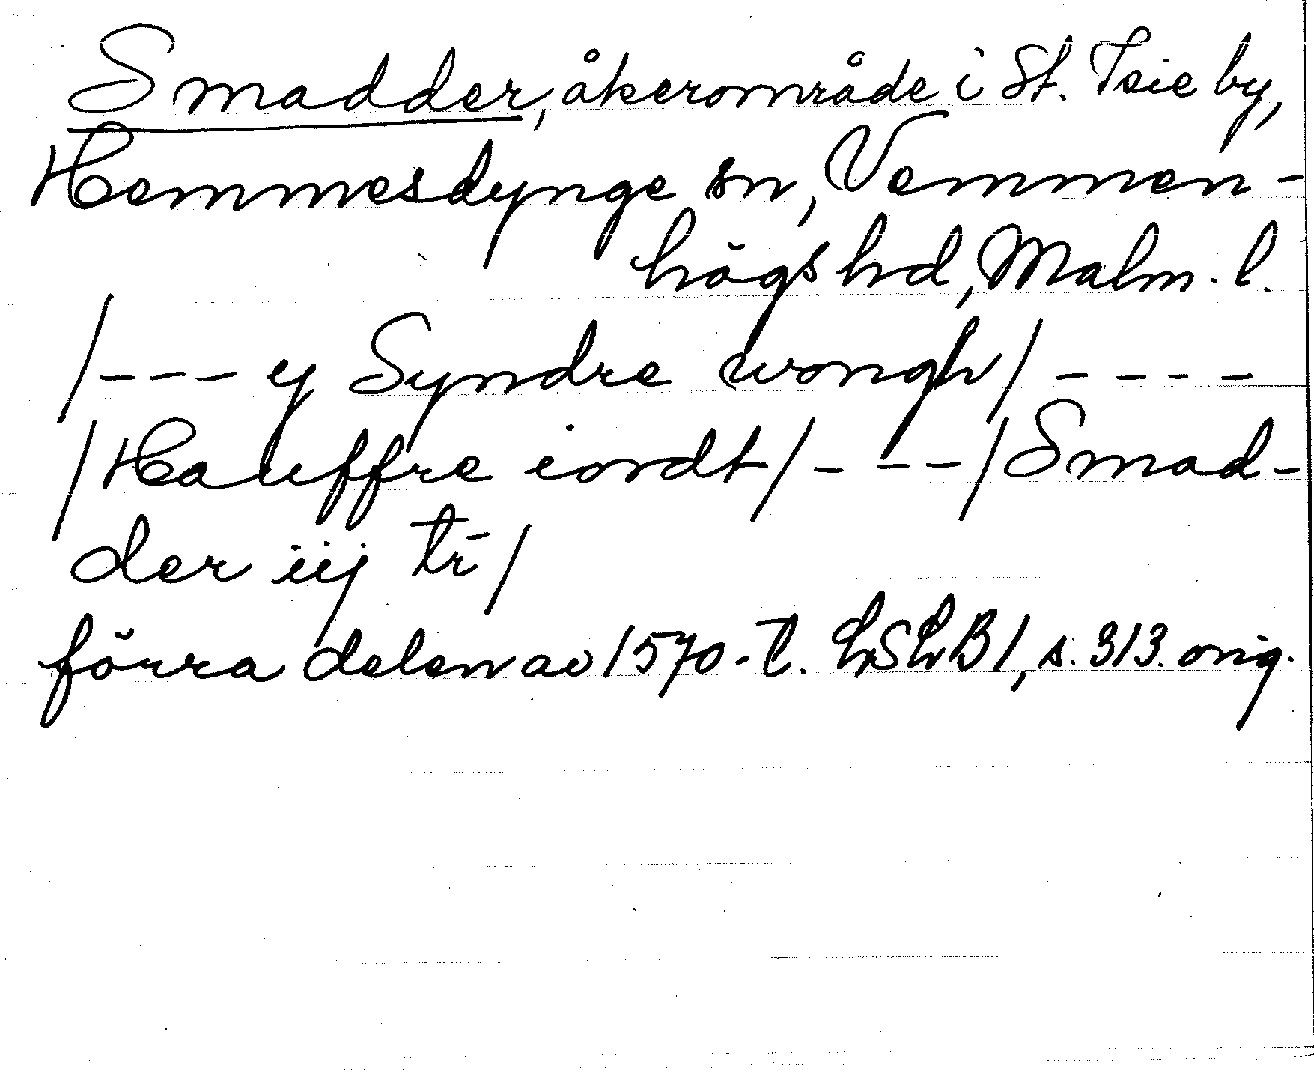 Smadder, åkerområde i St. Isie by,
Hemmesdynge sn, Vemmen-
högs hd, Malm. l.
/--- y Syndre wongh/ ----
/Hauffre iordt/---/Smad-
der iij tr̄/
förra delen av 1570-t. LSLB1, s. 313. orig.